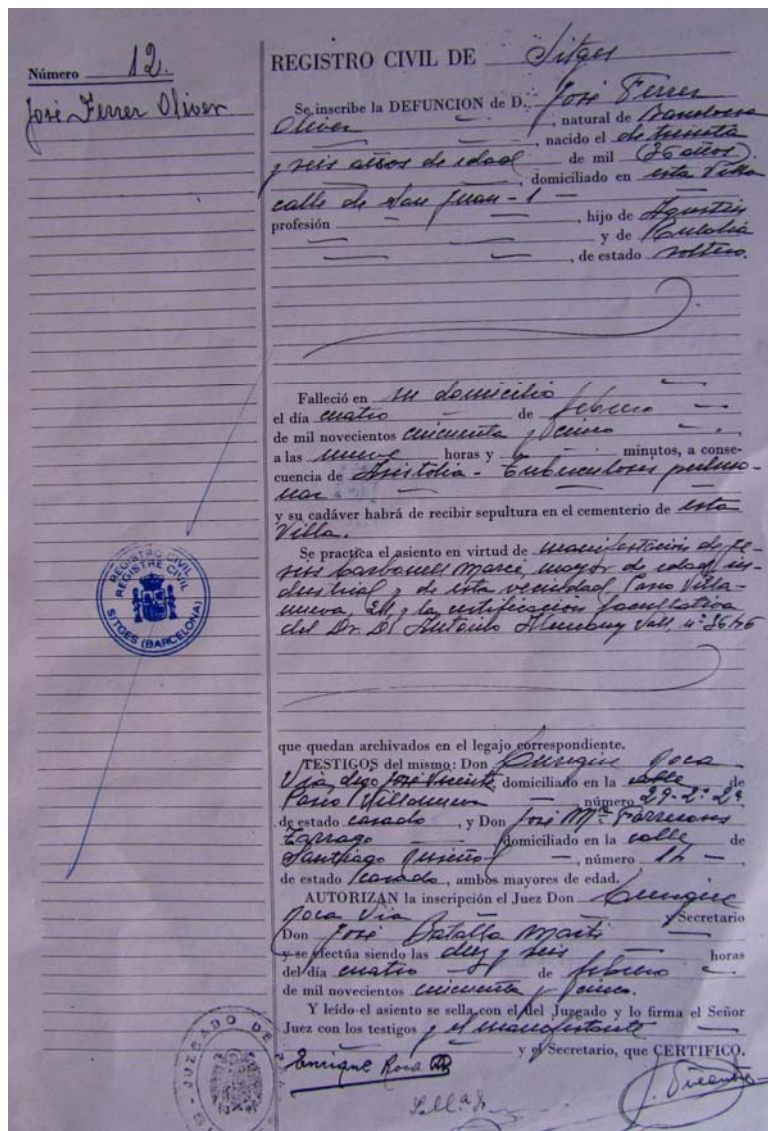 Número 12.
José Ferrer Oliver
REGISTRO CIVIL DE Sitges
Se inscribe la DEFUNCION de D. José Ferrer
Oliver, natural de
, nacido el de treinta
y seis años de edad de mil (36 años)
, domiciliado en esta Villa
calle de San Juan - 1
profesión , hijo de Agustín
y de Eulalia
, de estado soltero.
Falleció en su domicilio
el día cuatro de febrero
de mil novecientos cincuenta y cinco
a las nueve horas y minutos, a conse-
cuencia de Asistolia - Tuberculosis pulmo-
nar
y su cadáver habrá de recibir sepultura en el cementerio de esta
Villa.
Se practica el asiento en virtud de manifestación de Je-
sús Carbonell Marcé, mayor de edad, in-
dustrial y de esta vecindad, Paseo Villa-
nueva, y la certificación facultativa
del Dr. D. Antonio
que quedan archivados en el legajo correspondiente.
TESTIGOS del mismo: Don Enrique Roca
Via, digo José Vicente, domiciliado en la calle de
Paseo Villanueva, número 29-2º 2ª
de estado casado, y Don José Mª
domiciliado en la calle de
Santiago Rusiñol, número
de estado casado, ambos mayores de edad.
AUTORIZAN la inscripción el Juez Don Enrique
Roca Via y Secretario
Don José Batalla Martí
y se efectúa siendo las diez y seis horas
del día cuatro de febrero
de mil novecientos cincuenta y cinco.
Y leído el asiento se sella con el del Juzgado y lo firma el Señor
Juez con los testigos y el manifestante
y el Secretario, que CERTIFICO.
Enrique Roca
J. Vicente
REGISTRO CIVIL
REGISTRE CIVIL
SITGES (BARCELONA)
JUZGADO DE